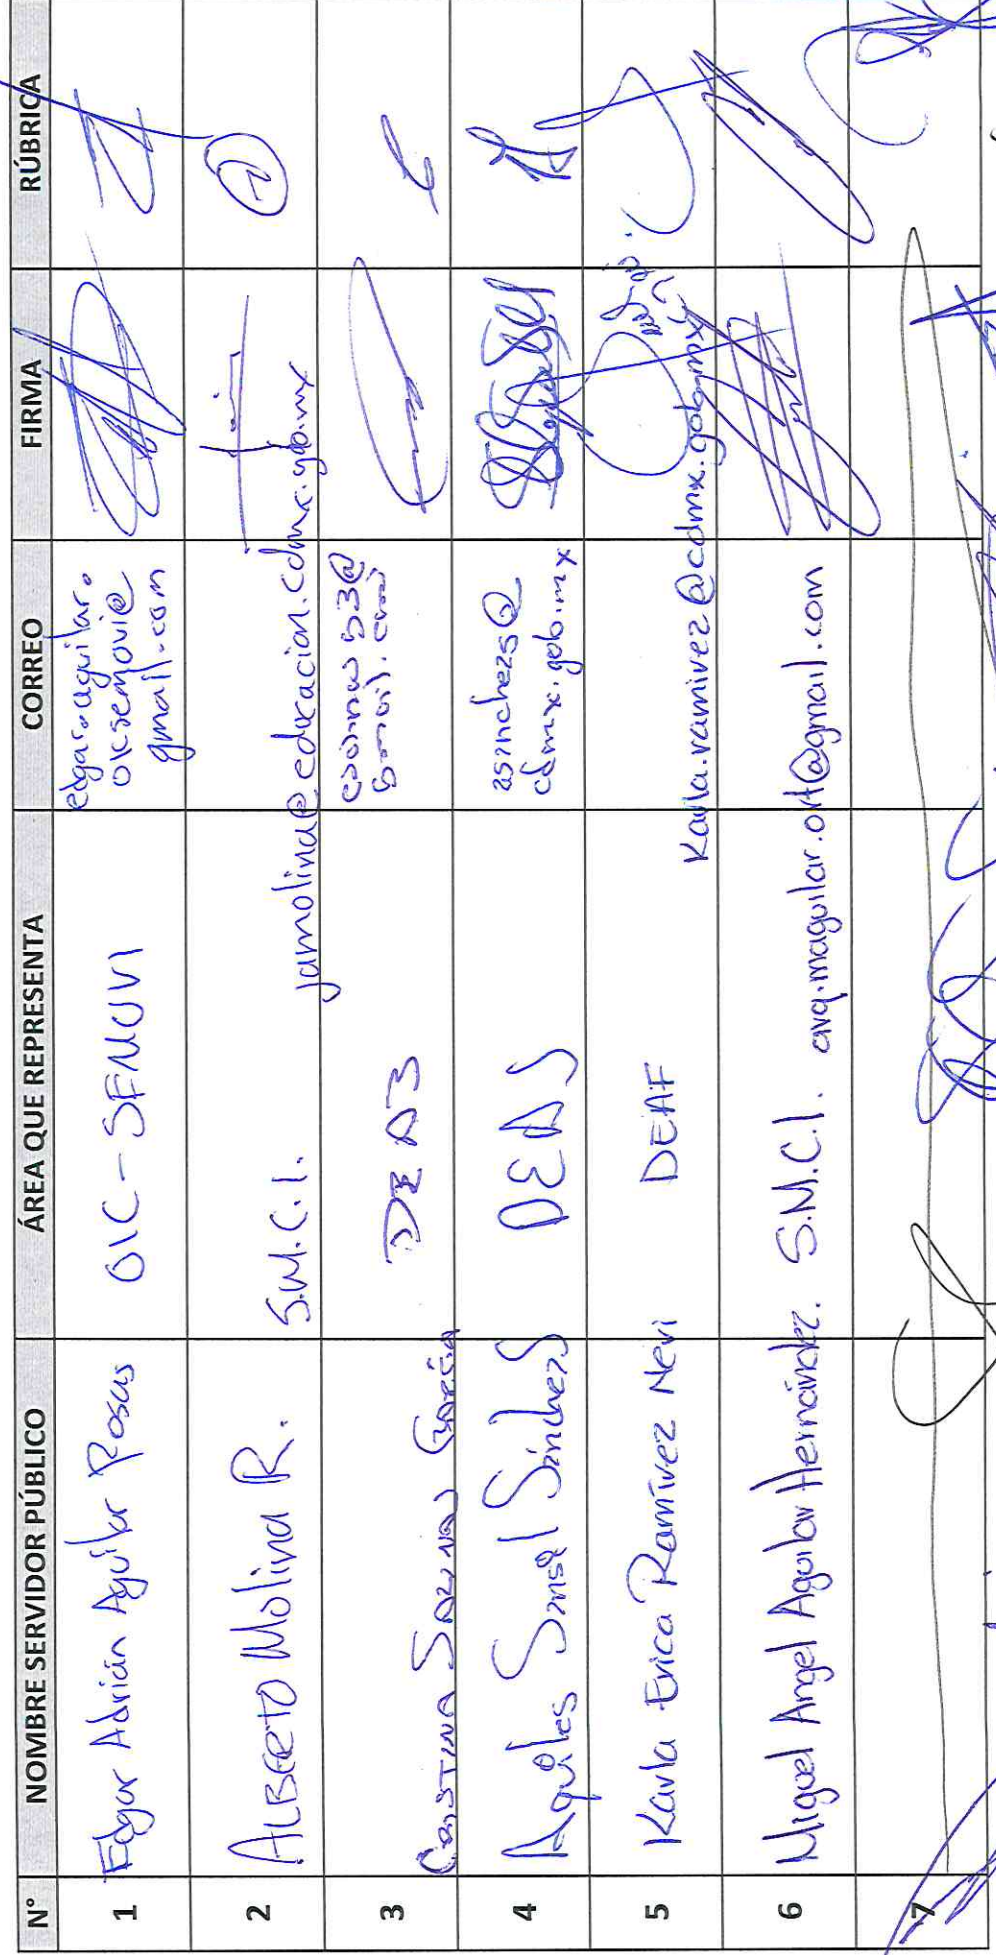 N° NOMBRE SERVIDOR PÚBLICO ÁREA QUE REPRESENTA CORREO FIRMA RÚBRICA
1 Edgar Adrián Aguilar Rosas OIC-SEMOVI edgar.aguilar.
oicsemovi@
gmail.com
2 ALBERTO Molina R. S.M.C.I. jamolina@educacion.cdmx.gob.mx
3 CRISTINA García
4 Aquiles Sánchez S DEAS asanchezs@
cdmx.gob.mx
5 Karla Erica Ramírez Neri DEAF karla.ramirez@cdmx.gob.mx
6 Miguel Angel Aguilar Hernández. S.M.C.I. arq.maguilar.ort@gmail.com
7